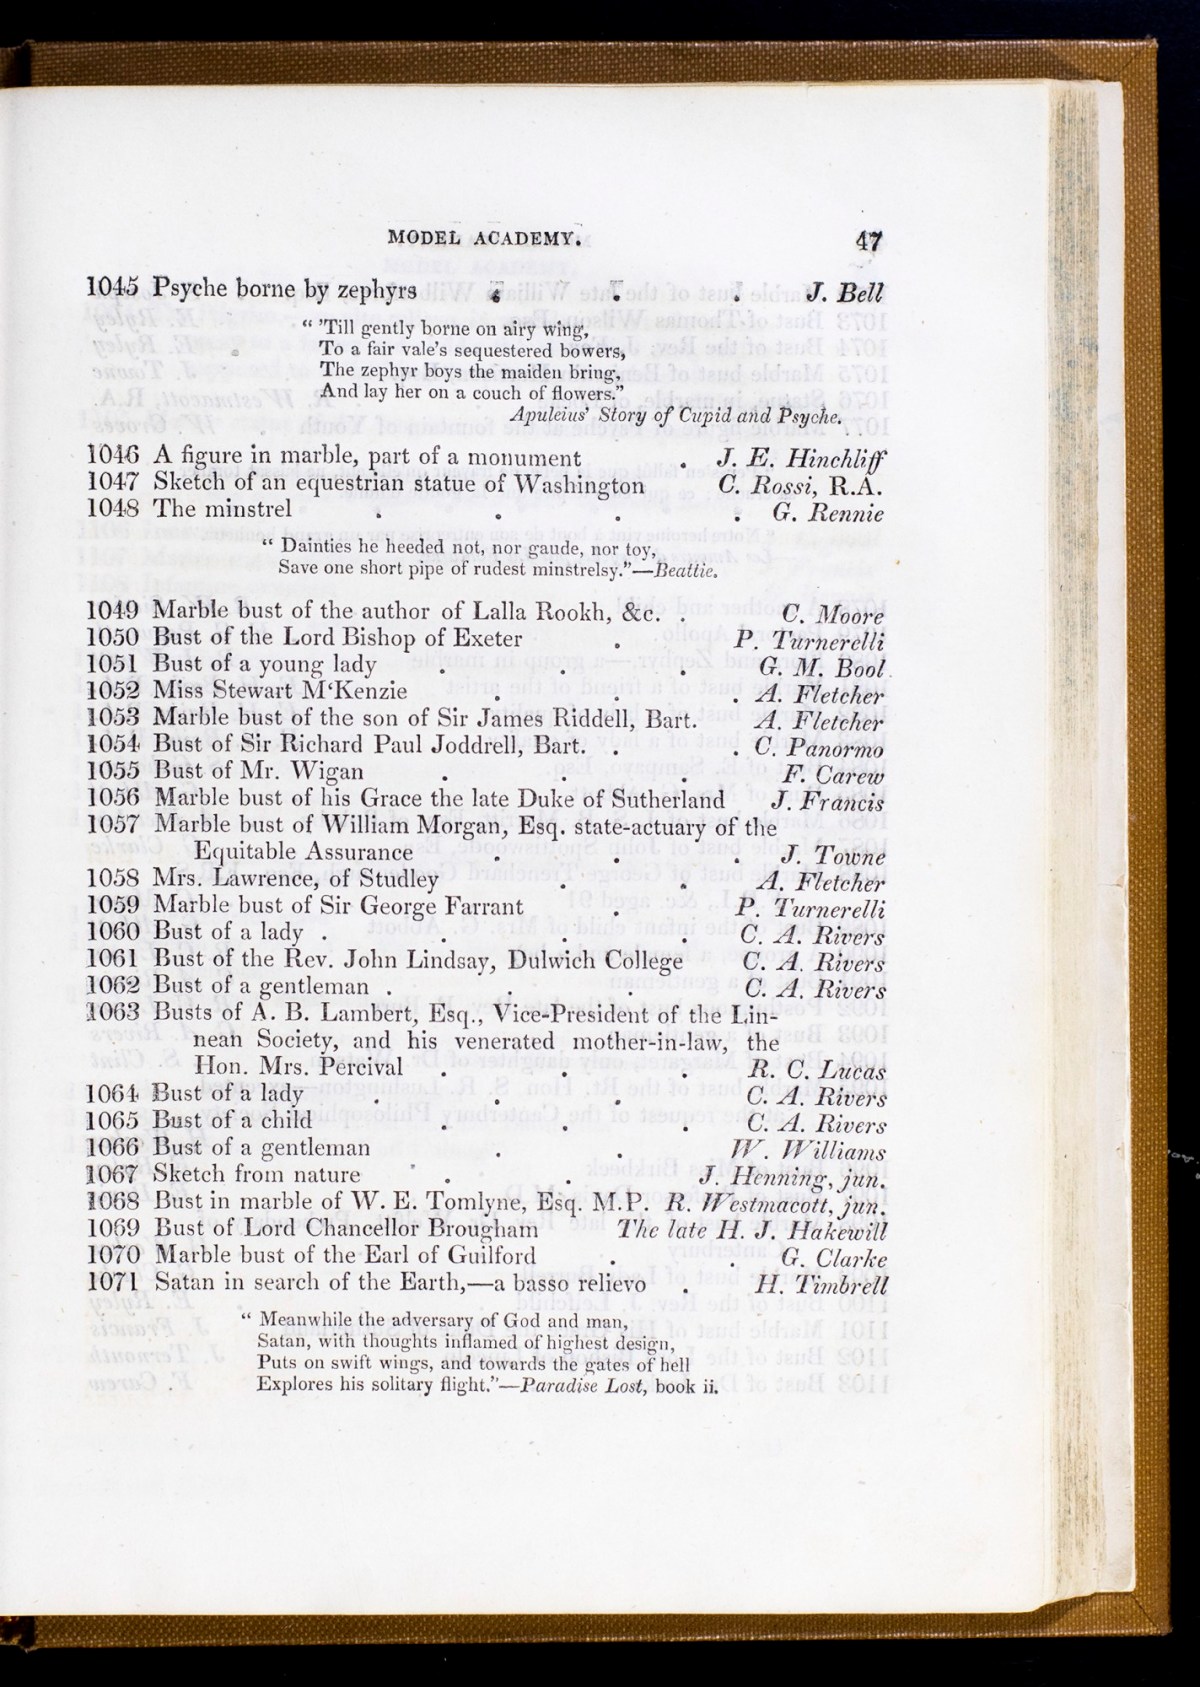 MODEL ACADEMY. 47
1045 Psyche borne by zephyrs . . . J. Bell
“ 'Till gently borne on airy wing,
To a fair vale's sequestered bowers,
The zephyr boys the maiden bring,
And lay her on a couch of flowers.”
Apuleius' Story of Cupid and Psyche.
1046 A figure in marble, part of a monument . J. E. Hinchliff
1047 Sketch of an equestrian statue of Washington C. Rossi, R.A.
1048 The minstrel . . . . G. Rennie
“ Dainties he heeded not, nor gaude, nor toy,
Save one short pipe of rudest minstrelsy.”—Beattie.
1049 Marble bust of the author of Lalla Rookh, &c. . C. Moore
1050 Bust of the Lord Bishop of Exeter . P. Turnerelli
1051 Bust of a young lady . . . G. M. Bool
1052 Miss Stewart M‘Kenzie . . . A. Fletcher
1053 Marble bust of the son of Sir James Riddell, Bart. A. Fletcher
1054 Bust of Sir Richard Paul Joddrell, Bart. . . C. Panormo
1055 Bust of Mr. Wigan . . . F. Carew
1056 Marble bust of his Grace the late Duke of Sutherland J. Francis
1057 Marble bust of William Morgan, Esq. state-actuary of the
Equitable Assurance . . . J. Towne
1058 Mrs. Lawrence, of Studley . . A. Fletcher
1059 Marble bust of Sir George Farrant . P. Turnerelli
1060 Bust of a lady . . . . C. A. Rivers
1061 Bust of the Rev. John Lindsay, Dulwich College C. A. Rivers
1062 Bust of a gentleman . . . C. A. Rivers
1063 Busts of A. B. Lambert, Esq., Vice-President of the Lin-
nean Society, and his venerated mother-in-law, the
Hon. Mrs. Percival . . . R. C. Lucas
1064 Bust of a lady . . . . C. A. Rivers
1065 Bust of a child . . . C. A. Rivers
1066 Bust of a gentleman . . W. Williams
1067 Sketch from nature . . J. Henning, jun.
1068 Bust in marble of W. E. Tomlyne, Esq. M.P. R. Westmacott, jun.
1069 Bust of Lord Chancellor Brougham The late H. J. Hakewill
1070 Marble bust of the Earl of Guilford . . G. Clarke
1071 Satan in search of the Earth,—a basso relievo . H. Timbrell
“ Meanwhile the adversary of God and man,
Satan, with thoughts inflamed of highest design,
Puts on swift wings, and towards the gates of hell
Explores his solitary flight.”—Paradise Lost, book ii.